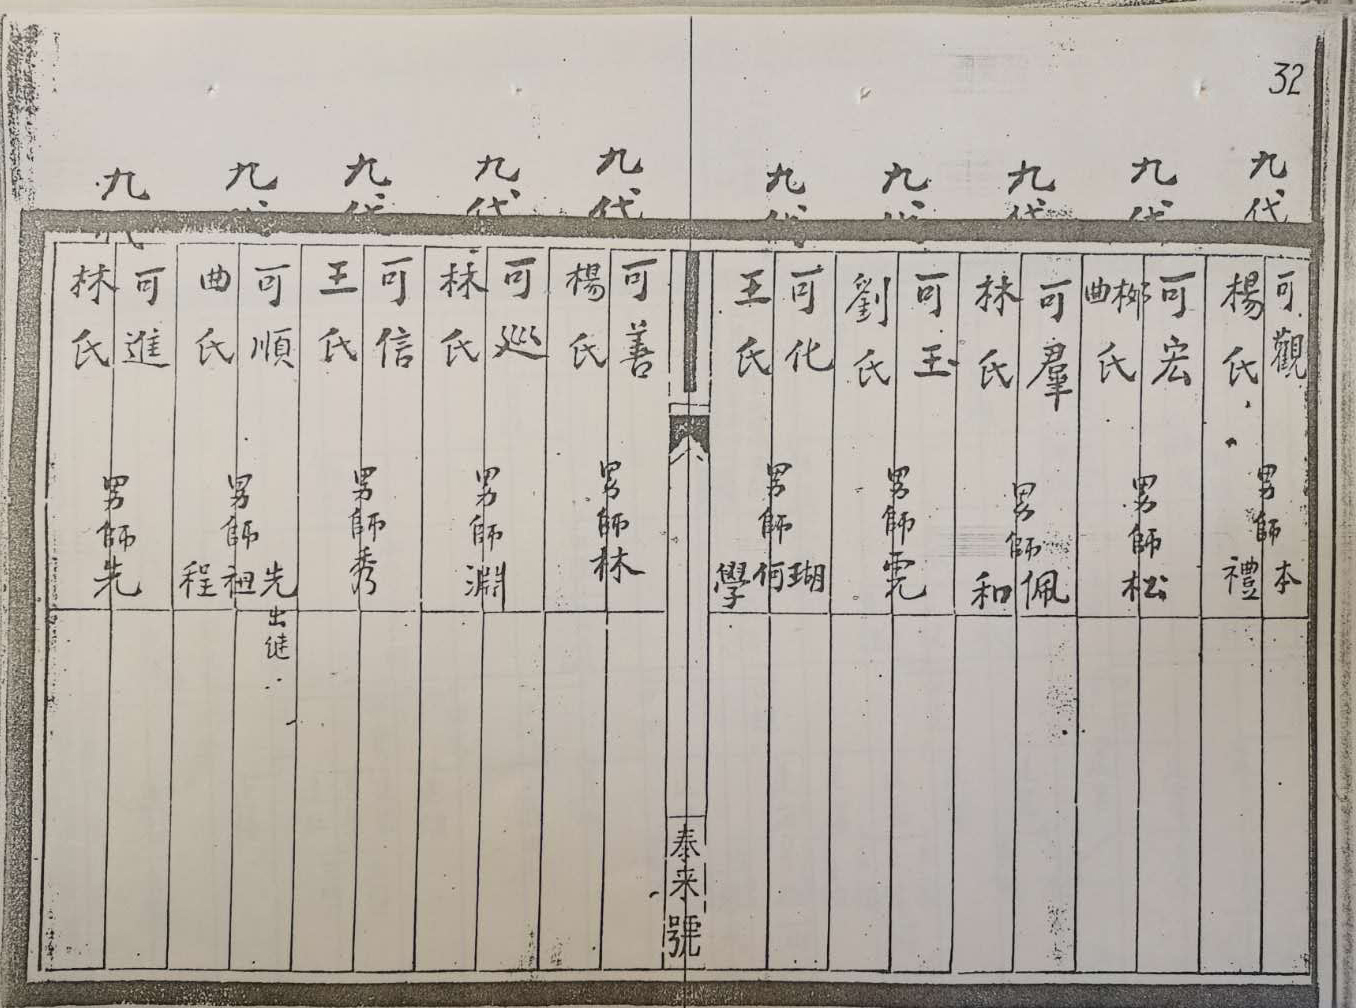 32
九代
可觀
楊氏
男師本
禮
九代
可宏
柳曲氏
男師松
九代
可羣
林氏
男師佩
和
九代
可玉
劉氏
男師
九代
可化
王氏
男師瑚
何
學
奉来號
九代
可善
楊氏
男師林
九代
可巡
林氏
男師淵
九代
可信
王氏
男師秀
九代
可順
曲氏
男師先出継
祖
程
九代
可進
林氏
男師先